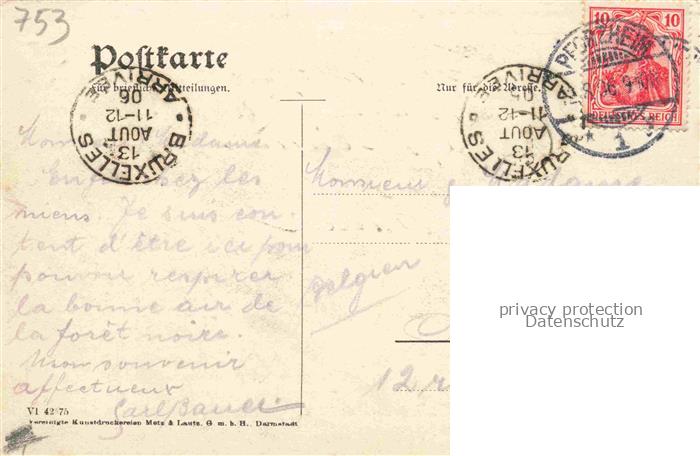 753
Postkarte
Für briefliche Mitteilungen.
Nur für die Adresse.
BRUXELLES
13
AOUT
11-12
06
ARRIVEE
BRUXELLES
13
AOUT
11-12
06
ARRIVEE
PFORZHEIM
1
10 10
DEUTSCHES REICH
Madame
les
miens. Je suis con-
tent d'être ici pour
pouvoir respirer
la bonne air de
la forêt noire.
Mon souvenir
affectueux
Carl Bauer
Monsieur
Belgien
12 r
VI 42 75
Vereinigte Kunstdruckereien Metz & Lautz, G. m. b. H., Darmstadt
privacy protection
Datenschutz